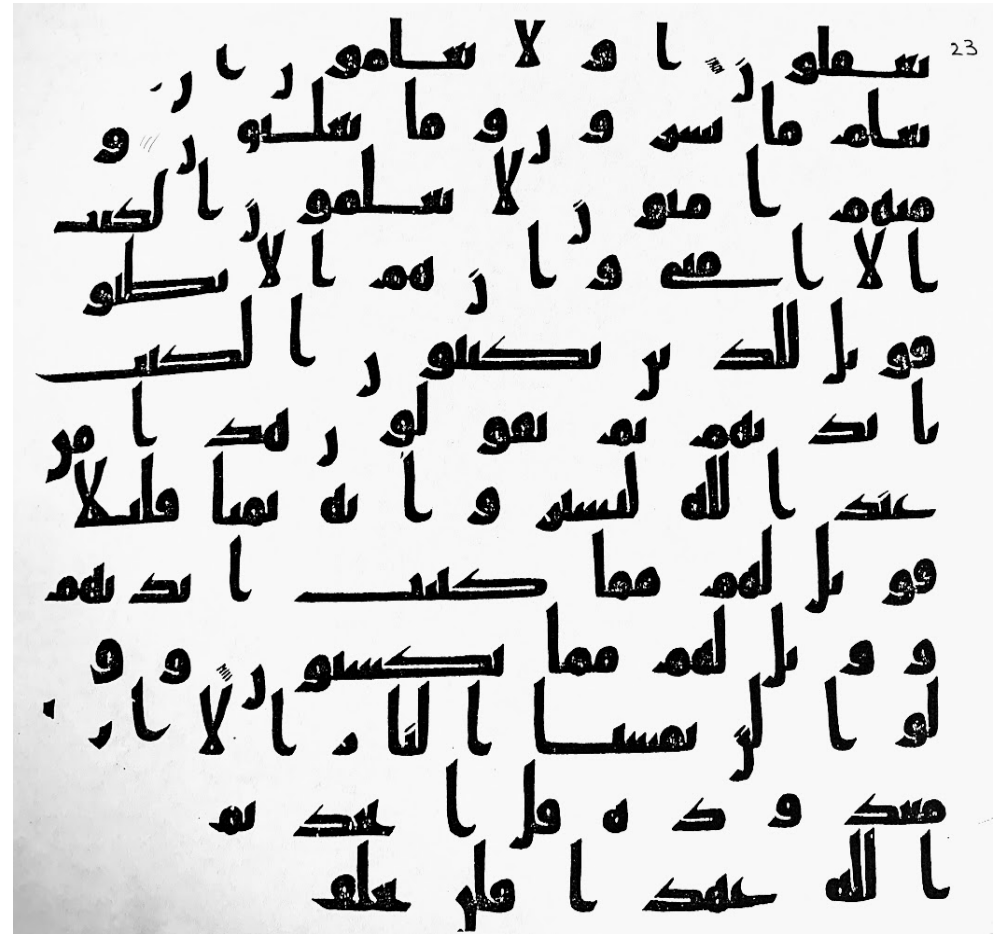 23
تعقلون اولا يعلمون ان
يعلم ما يسرون وما يعلنون و
منهم اميون لا يعلمون الكتب
الا امني وان هم الا يظنو
فويل للذين يكتبون الكتب
بايديهم ثم يقولون هذا من
عند الله ليشتروا به ثمنا قليلا
فويل لهم مما كتبت ايديهم
وويل لهم مما يكسبون وق
لوا لن تمسنا النار الا
معدودة قل اتخذتم
الله عهدا فلن يخلف